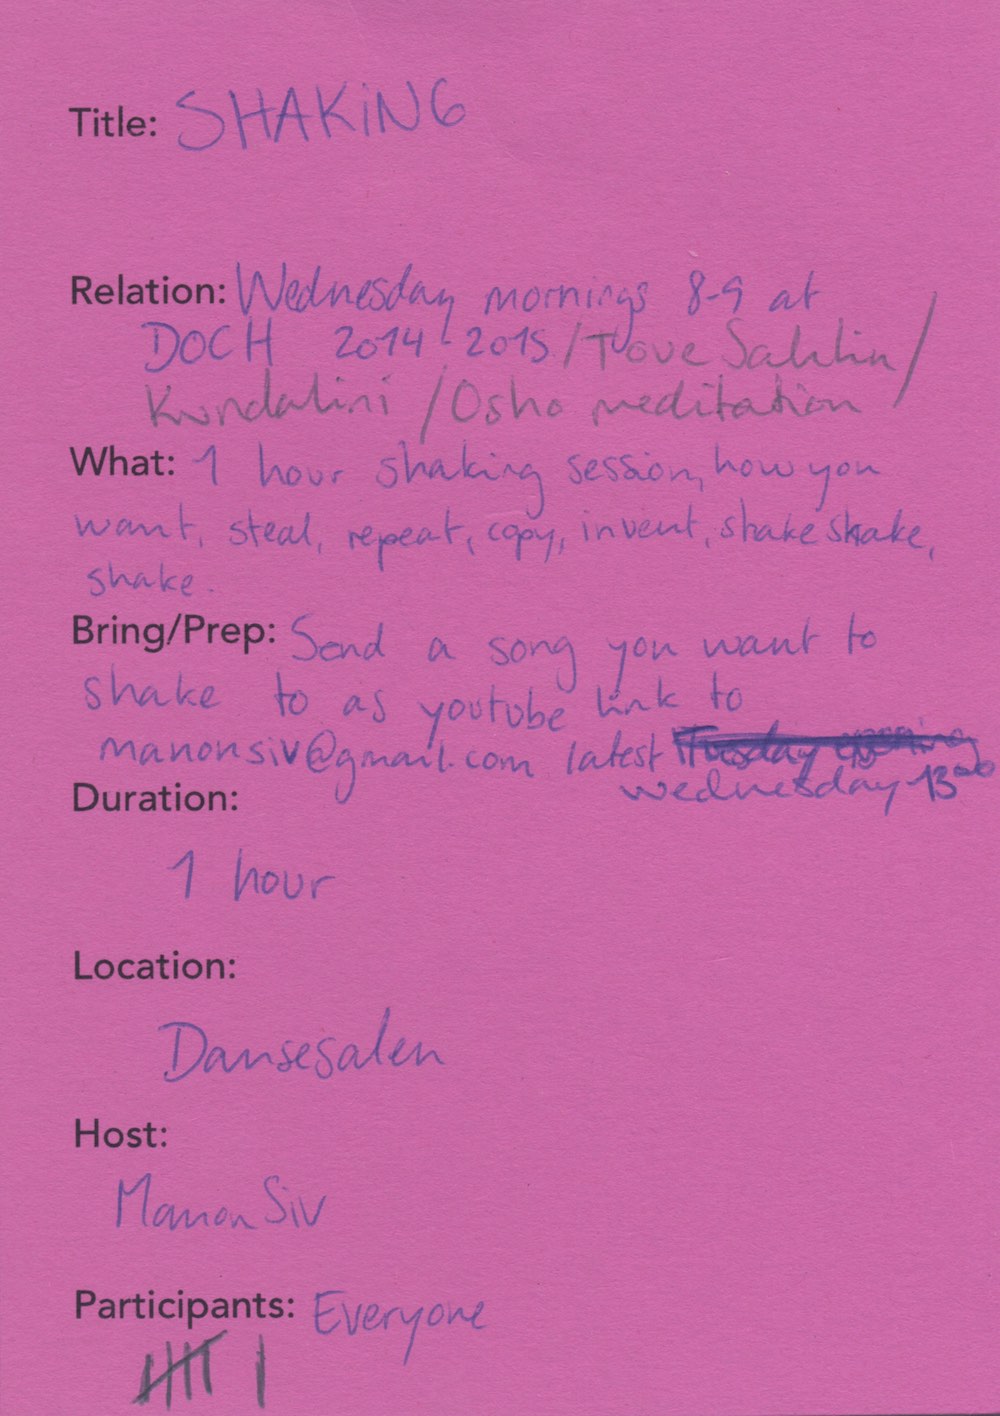 Title: SHAKiNG
Relation: Wednesday mornings 8-9 at
DOCH 2014-2015/Tove Sahlin/
Kundalini/Osho meditation
What: 1 hour shaking session, how you
want, steal, repeat, copy, invent, shake shake,
shake.
Bring/Prep: Send a song you want to
shake to as youtube link to
manonsiv@gmail.com latest Tuesday evening
wednesday 13⁰⁰
Duration:
1 hour
Location:
Dansesalen
Host:
Manon Siv
Participants: Everyone